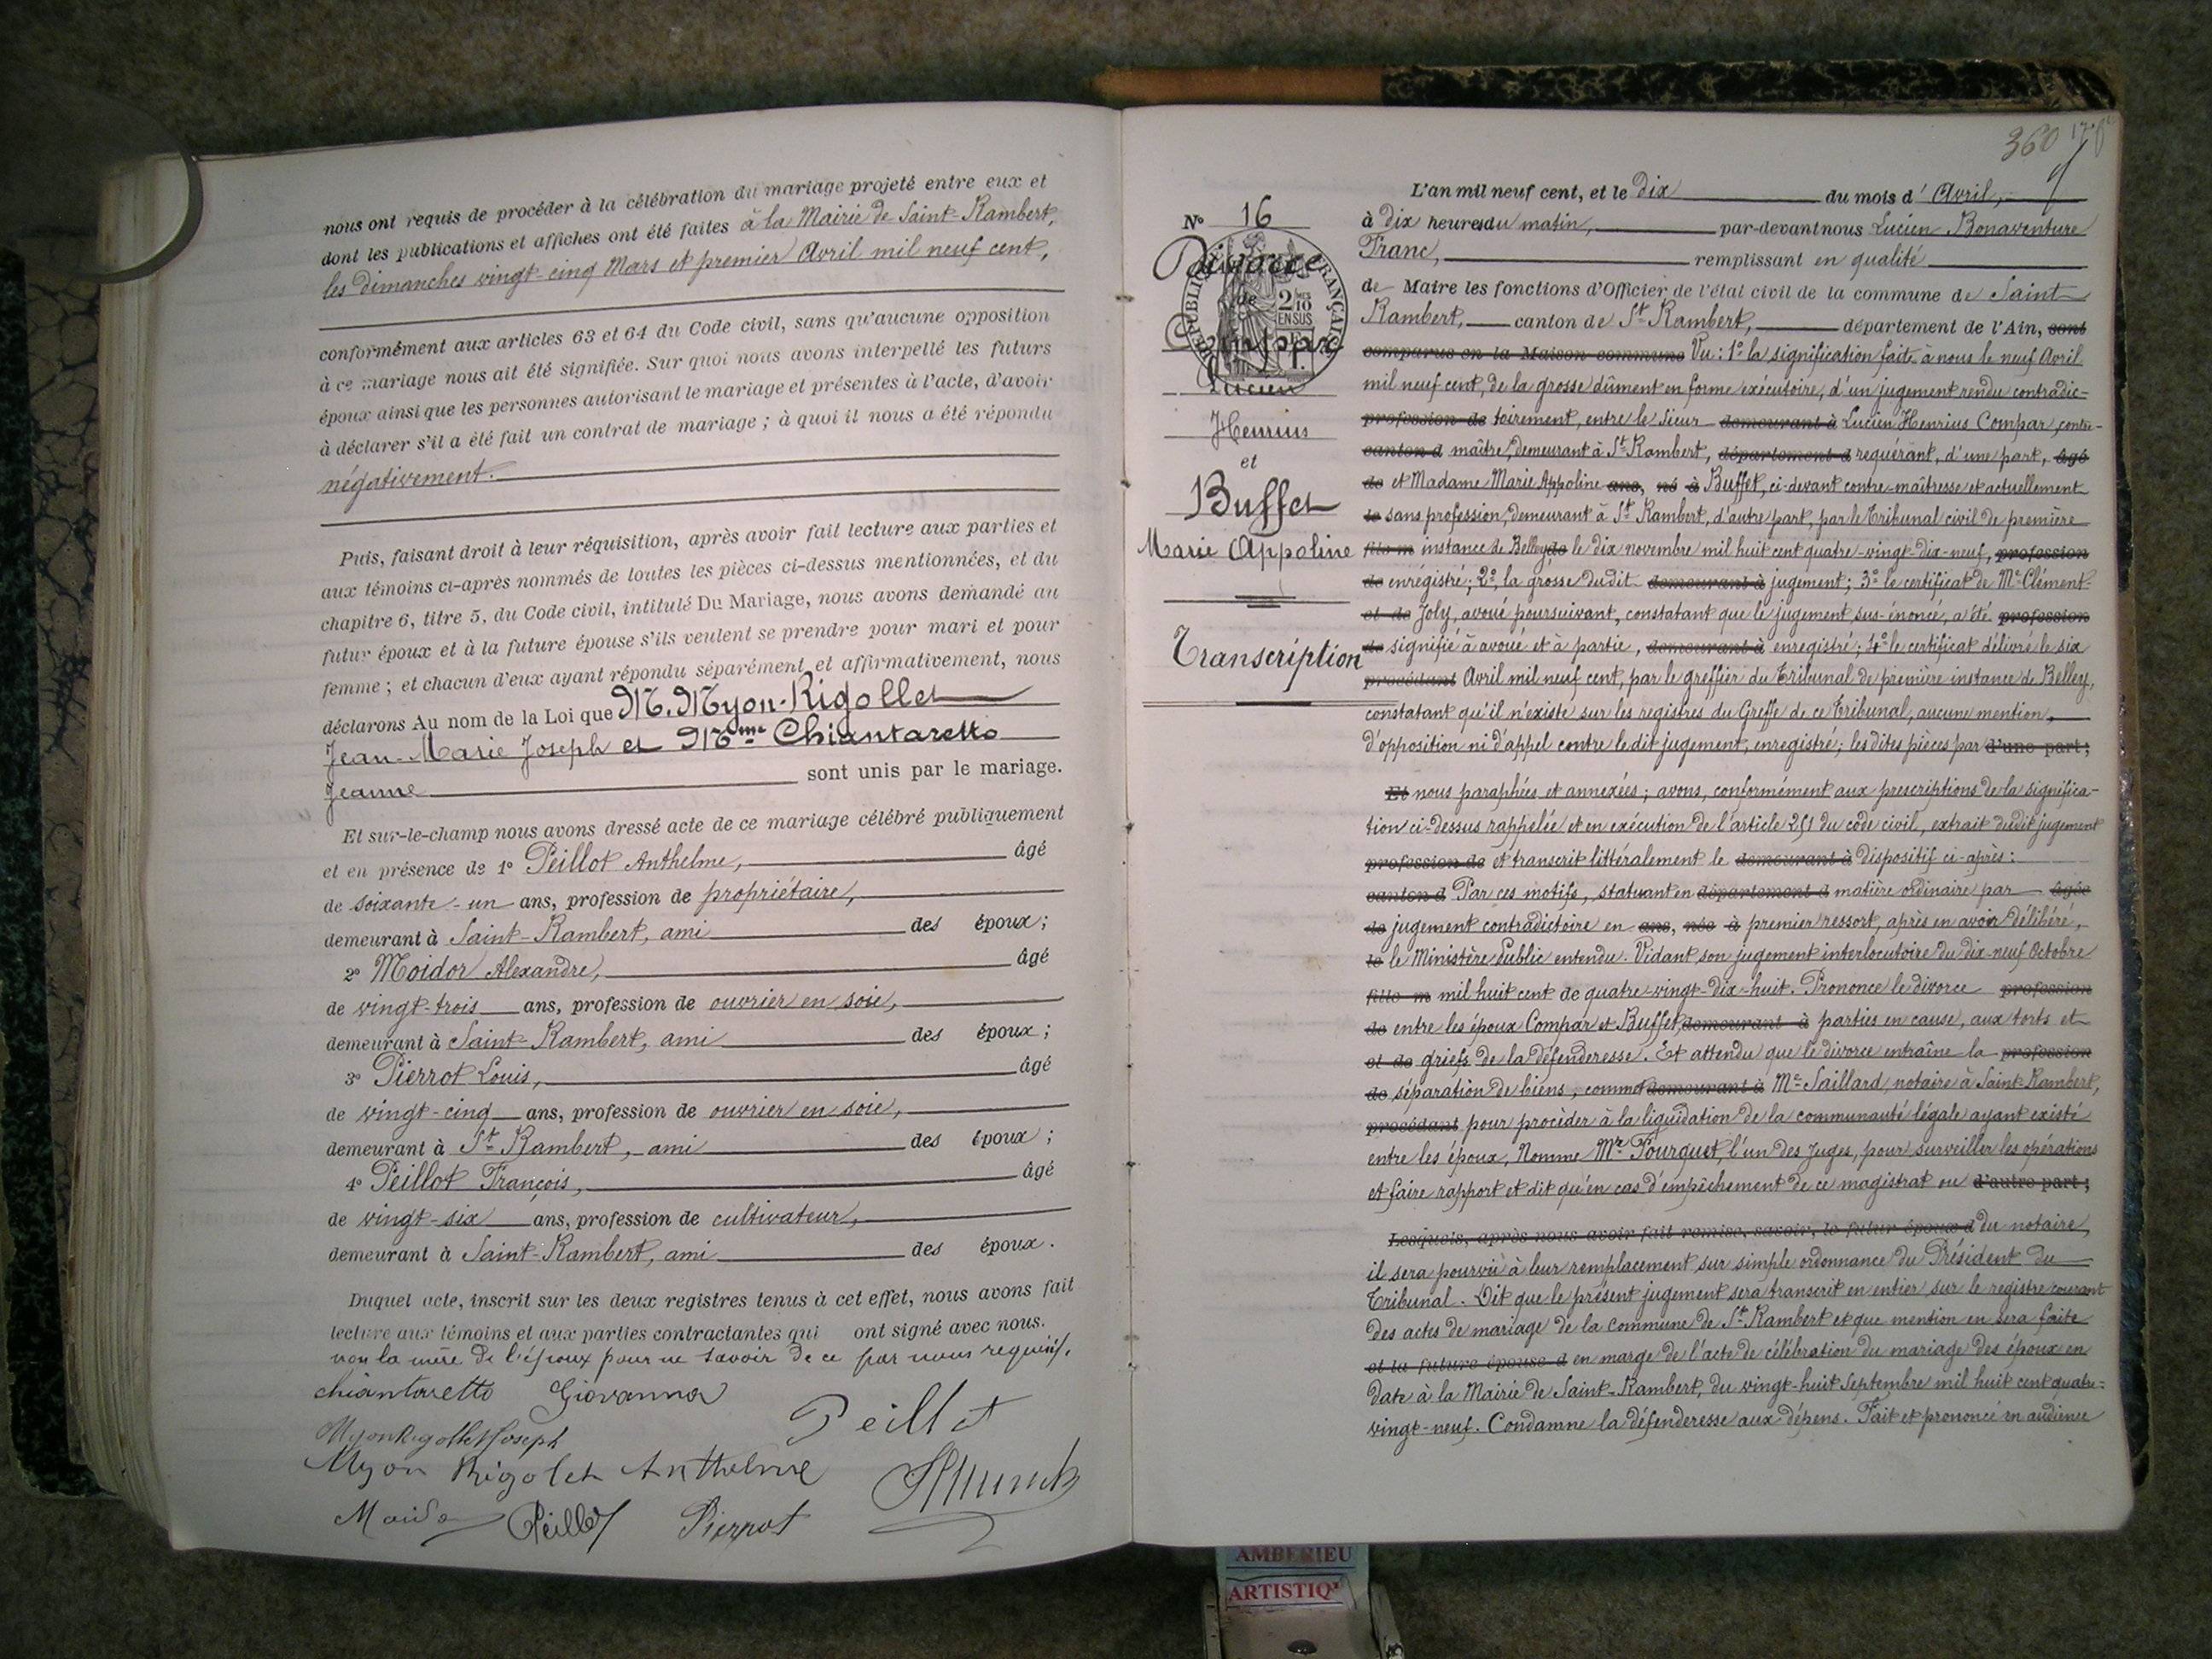 nous ont requis de procéder à la célébration du mariage projeté entre eux et
dont les publications et affiches ont été faites à la Mairie de Saint-Rambert,
les dimanches vingt-cinq Mars et premier Avril mil neuf cent,
conformément aux articles 63 et 64 du Code civil, sans qu'aucune opposition
à ce mariage nous ait été signifiée. Sur quoi nous avons interpellé les futurs
époux ainsi que les personnes autorisant le mariage et présentes à l'acte, d'avoir
à déclarer s'il a été fait un contrat de mariage ; à quoi il nous a été répondu
négativement.
Puis, faisant droit à leur réquisition, après avoir fait lecture aux parties et
aux témoins ci-après nommés de toutes les pièces ci-dessus mentionnées, et du
chapitre 6, titre 5, du Code civil, intitulé Du Mariage, nous avons demandé au
futur époux et à la future épouse s'ils veulent se prendre pour mari et pour
femme ; et chacun d'eux ayant répondu séparément et affirmativement, nous
déclarons Au nom de la Loi que M. Myon-Rigollet
Jean-Marie Joseph et Mme Chiantaretto
Jeanne sont unis par le mariage.
Et sur-le-champ nous avons dressé acte de ce mariage célébré publiquement
et en présence de 1º Peillot Anthelme, âgé
de soixante-un ans, profession de propriétaire,
demeurant à Saint-Rambert, ami des époux ;
2º Moidor Alexandre, âgé
de vingt-trois ans, profession de ouvrier en soie,
demeurant à Saint-Rambert, ami des époux ;
3º Pierrot Louis, âgé
de vingt-cinq ans, profession de ouvrier en soie,
demeurant à St Rambert, ami des époux ;
4º Peillot François, âgé
de vingt-six ans, profession de cultivateur,
demeurant à Saint-Rambert, ami des époux.
Duquel acte, inscrit sur les deux registres tenus à cet effet, nous avons fait
lecture aux témoins et aux parties contractantes qui ont signé avec nous.
non la mère de l'époux pour ne savoir de ce par nous requis.
Chiantaretto Giovanna
Peillot
Myon Rigollet Joseph
Myon Rigolet Anthelme
Moidor Peillot Pierrot
360
Nº 16
Divorce
de
Compar
Lucien
Henrius
et
Buffet
Marie Appoline
Transcription
RÉPUBLIQUE FRANÇAISE
2/10 EN SUS
L'an mil neuf cent, et le dix du mois d'Avril,
à dix heures du matin, par-devant nous Lucien Bonaventure
Franc, remplissant en qualité
de Maire les fonctions d'Officier de l'état civil de la commune de Saint
Rambert, canton de St Rambert, département de l'Ain, sont
comparus en la Maison commune Vu : 1º la signification faite à nous le neuf Avril
mil neuf cent, de la grosse dûment en forme exécutoire, d'un jugement rendu contradic-
profession de toirement, entre le sieur demeurant à Lucien Henrius Compar, contre-
canton d maître, demeurant à St Rambert, département d requérant, d'une part, âgé
de et Madame Marie Appoline ans, né à Buffet, ci-devant contre-maîtresse et actuellement
le sans profession, demeurant à St Rambert, d'autre part, par le Tribunal civil de première
fils m instance de Belley de le dix novembre mil huit cent quatre-vingt-dix-neuf, profession
de enrégistré ; 2º la grosse dudit demeurant à jugement ; 3º le certificat de Me Clément-
et de Joly, avoué poursuivant, constatant que le jugement sus-énoncé, a été profession
de signifié à avoué et à partie, demeurant à enregistré ; 4º le certificat délivré le six
procédant Avril mil neuf cent, par le greffier du Tribunal de première instance de Belley,
constatant qu'il n'existe sur les registres du Greffe de ce Tribunal, aucune mention,
d'opposition ni d'appel contre le dit jugement, enregistré ; les dites pièces par d'une part ;
Et nous paraphées et annexées ; avons, conformément aux prescriptions de la significa-
tion ci-dessus rappelée et en exécution de l'article 251 du code civil, extrait dudit jugement
profession de et transcrit littéralement le demeurant à dispositif ci-après :
canton d Par ces motifs, statuant en département d matière ordinaire par âgée
de jugement contradictoire en ans, née à premier ressort, après en avoir délibéré,
le le Ministère Public entendu. Vidant son jugement interlocutoire du dix-neuf Octobre
fille m mil huit cent de quatre-vingt-dix-huit. Prononce le divorce profession
de entre les époux Compar et Buffet demeurant à parties en cause, aux torts et
et de griefs de la défenderesse. Et attendu que le divorce entraîne la profession
de séparation de biens, commet demeurant à Me Saillard, notaire à Saint-Rambert,
procédant pour procéder à la liquidation de la communauté légale ayant existé
entre les époux, Nomme Mr Fourquet, l'un des Juges, pour surveiller les opérations
et faire rapport et dit qu'en cas d'empêchement de ce magistrat ou d'autre part ;
Lesquels, après nous avoir fait remise, savoir, le futur époux d du notaire,
il sera pourvu à leur remplacement sur simple ordonnance du Président du
Tribunal. Dit que le présent jugement sera transcrit en entier sur le registre courant
des actes de mariage de la commune de St Rambert et que mention en sera faite
et la future épouse d en marge de l'acte de célébration du mariage des époux en
date à la Mairie de Saint-Rambert, du vingt-huit Septembre mil huit cent quatre-
vingt-neuf. Condamne la défenderesse aux dépens. Fait et prononcé en audience
AMBERIEU
ARTISTIQ